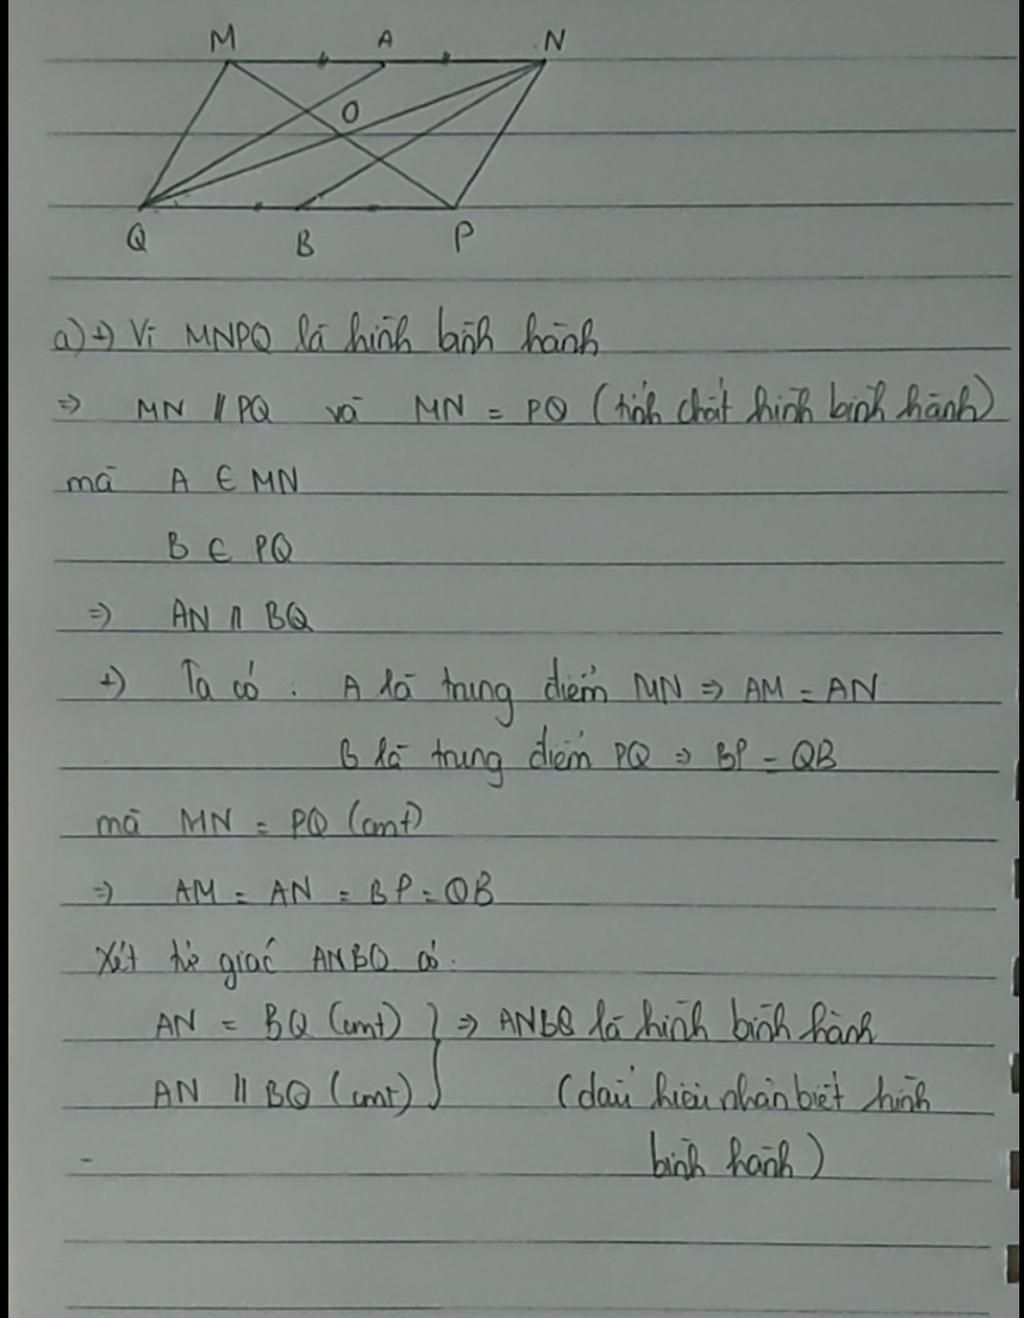 M A N
O
Q B P
a) +) Vì MNPQ là hình bình hành
=> MN // PQ và MN = PQ (tính chất hình bình hành)
mà A ∈ MN
B ∈ PQ
=> AN // BQ
+) Ta có : A là trung điểm MN => AM = AN
B là trung điểm PQ => BP = QB
mà MN = PQ (cmt)
=> AM = AN = BP = QB
Xét tứ giác ANBQ có:
AN = BQ (cmt) } => ANBQ là hình bình hành
AN // BQ (cmt) (dấu hiệu nhận biết hình
bình hành)